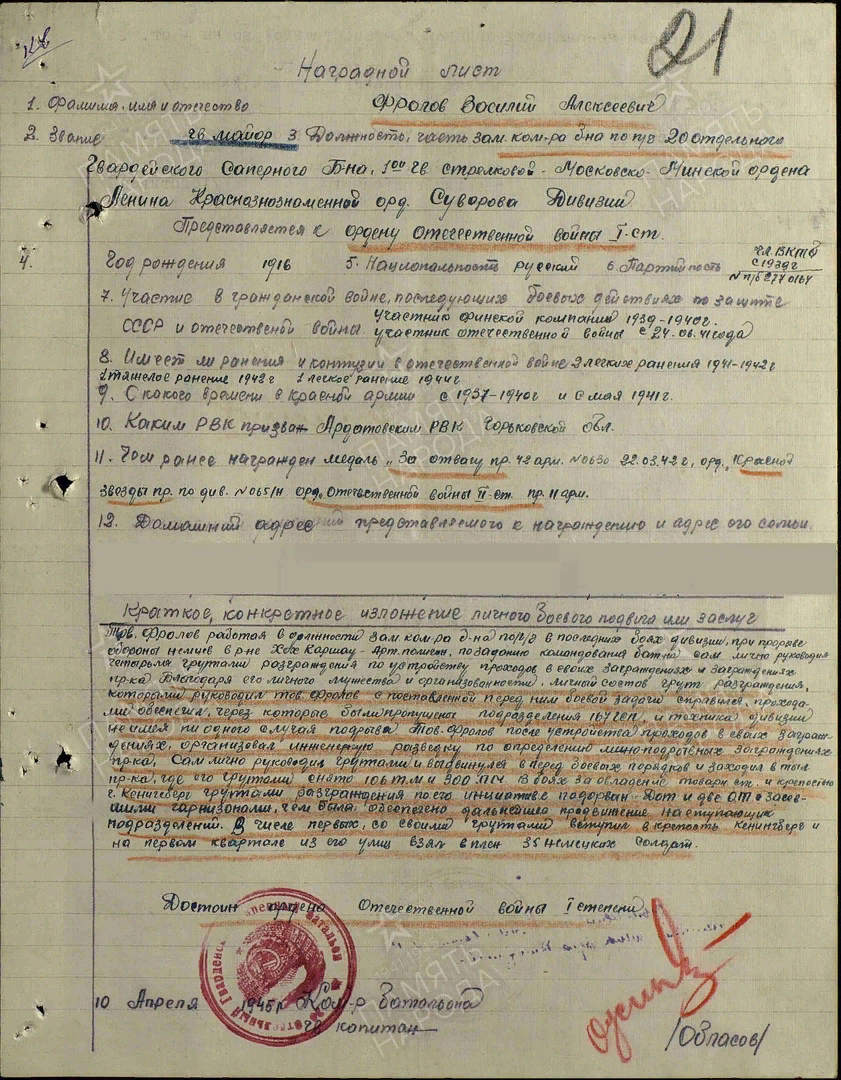 21
Наградной лист
1. Фамилия, имя и отчество Фролов Василий Алексеевич
2. Звание гв майор 3. Должность, часть зам. ком-ра б-на по п/ч 20 отдельного
Гвардейского Саперного Б-на, 1ой гв. стрелковой - Московско-Минской ордена
Ленина Краснознознаменной орд. Суворова Дивизии
Представляется к ордену Отечественной войны I-ст.
4. Год рождения 1916 5. Национальность русский 6. Партийность чл. ВКПб
с 1939г
N п/б
7. Участие в гражданской войне, последующих боевых действиях по защите
участник финской компании 1939-1940г.
СССР и отечественной войны. участник отечественной войны с 24.06.41 года
8. Имеет ли ранения и контузии в отечественной войне 2 легких ранения 1941-1942г
1 тяжелое ранение 1942г 1 легкое ранение 1944г
9. С какого времени в красной армии с 1937-1940г и с мая 1941г.
10. Каким РВК призван Ардатовским РВК Горьковской обл.
11. Чем ранее награжден медаль „За отвагу пр. 42 арм. N0630 22.03.42г, орд. „Красной
Звезды пр. по див. N065/н орд. „Отечественной войны II-ст. пр. 11 арм.
12. Домашний адрес представляемого к награждению и адрес его семьи.
Краткое, конкретное изложение личного боевого подвига или заслуг
Тов. Фролов работая в должности зам. ком-ра б-на по п/ч в последних боях дивизии, при прорыве
обороны немцев в р-не Хох Каршау - Арт. полигон, по заданию командования бат-на сам лично руководил
четырьмя групами разграждения по устройству проходов в своих заграждениях и заграждениях
пр-ка. Благодаря его личного мужества и организованности, личный состав груп разграждения,
которыми руководил тов. Фролов с поставленной перед ним боевой задачи справился, прохода-
ми обеспечил, через которые были пропущены подразделения 167 ГСП, и техника дивизии
не имея ни одного случая подрыва. Тов. Фролов после устройства проходов в своих заграж-
дениях, организовал инженерную разведку по определению минно-подрывных заграждениях
пр-ка, Сам лично руководил групами и выдвинулся в перед боевых порядков и заходил в тыл
пр-ка, где его групами снято 106 Т.М и 300 П.М. В боях за овладение товарн. ст. и крепостью
г. Кенигсберг групами разграждения по его инициативе подорван Дот и две ОТ с засев-
шими гарнизонами, чем было обеспечено дальнейшее продвижение наступающих
подразделений. В числе первых, со своими групами вступил в крепость Кенингберг и
на первом квартале из его улиц взял в плен 35 немецких солдат.
Достоин ордена Отечественной войны I степени
10 Апреля 1945г Ком-р батальона
гв капитан /Обласов/